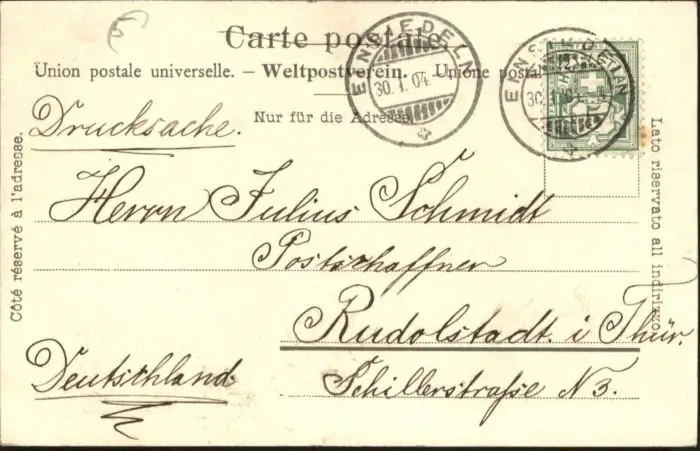 5
Carte postale.
Union postale universelle. – Weltpostverein. – Unione postale
Nur für die Adresse.
EINSIEDELN
30.I.04.
EINSIEDELN
30.I.04
Drucksache.
Herrn Julius Schmidt
Postschaffner
Rudolstadt. i Thür.
Schillerstraße N 3.
Deutschland
Côté réservé à l'adresse.
Lato riservato all indirizzo